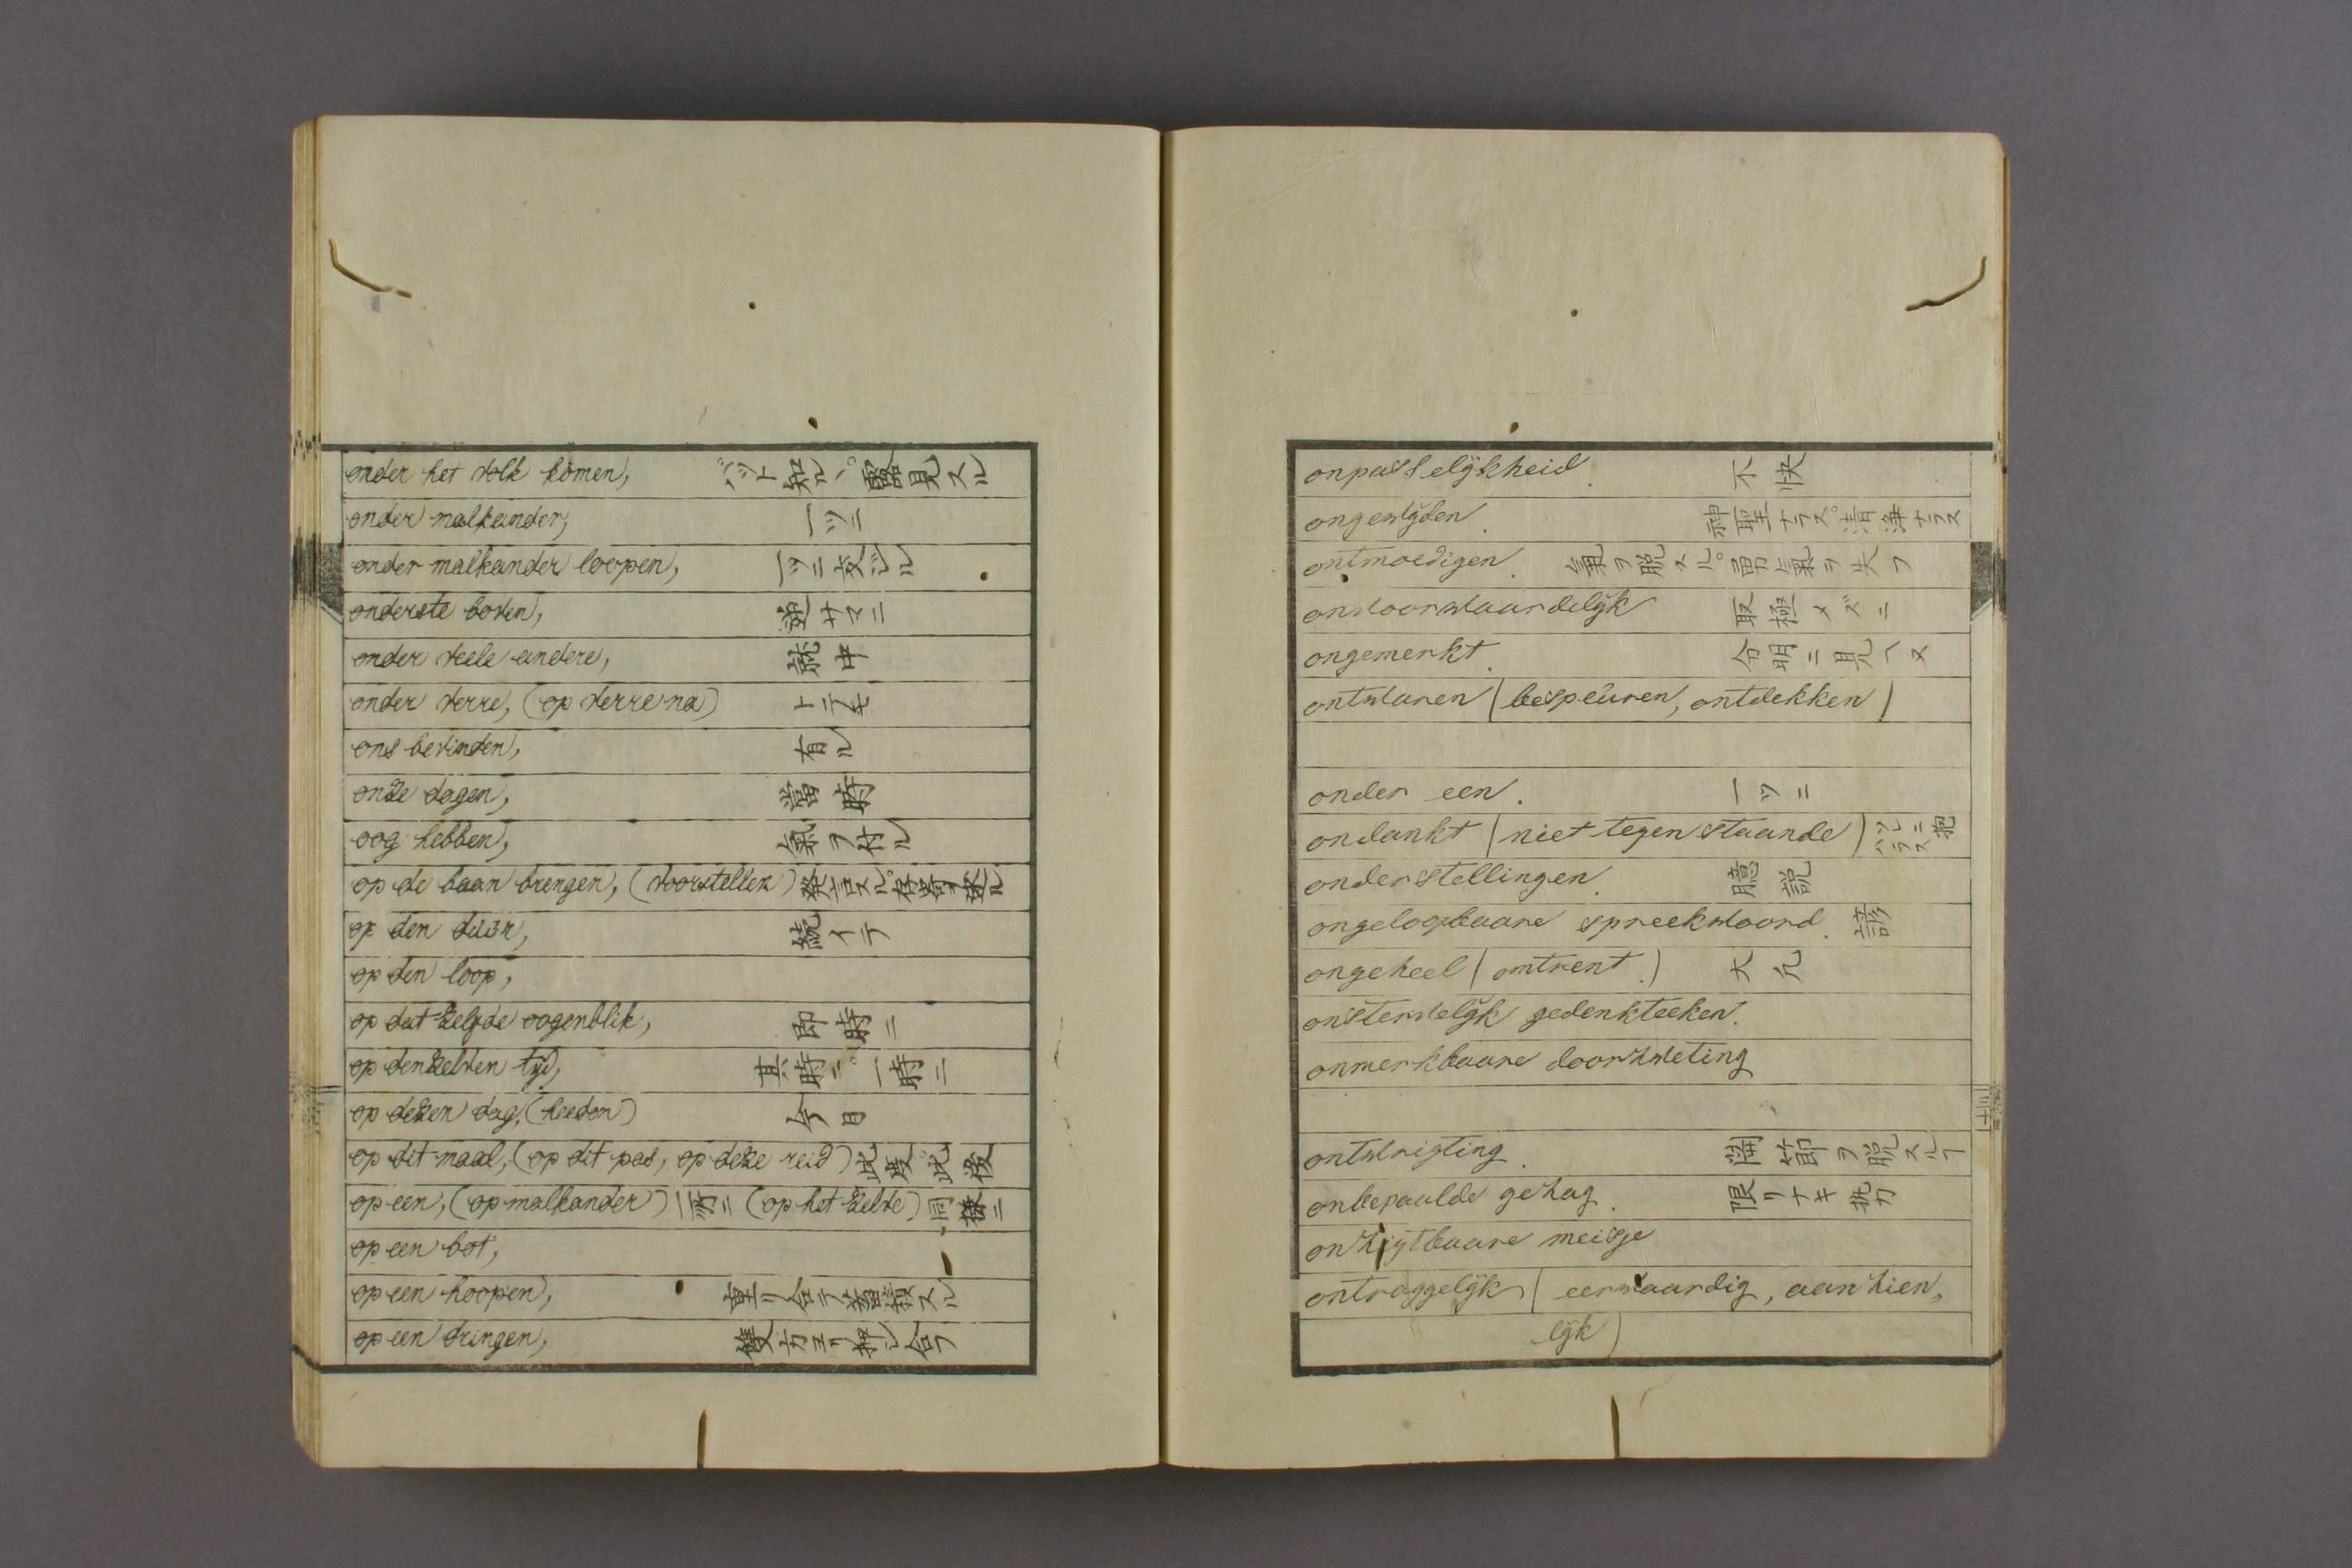 onder het volk komen, パット知ル、。露見スル
onder malkander, 一ツニ
onder malkander loopen, 一ツニ交ジル
onderste boven, 逆サマニ
onder veele andere, 就中
onder verre, (op verre na) トテモ
ons bevinden, 有ル
onze dagen, 當時
oog hebben, 氣ヲ付ル
op de baan brengen, (voorstellen) 発言スル。存寄ヲ述ル
op den duur, 続イテ
op den loop,
op dat zelfde oogenblik, 即時ニ
op denzelven tyd, 其時ニ。一時ニ
op dezen dag, (heeden) 今日
op dit maal, (op dit pas, op deze reid) 此度 此後
op een, (op malkander) 一所ニ (op het zelve) 同様ニ
op een bot,
op een hoopen, 重リ合テ 蓄積スル
op een dringen, 雙方ヨリ押シ合フ
onpasselijkheid. 不快
ongewijden. 神聖ナラス。清浄ナラス
ontmoedigen. 氣ヲ脱スル。勇氣ヲ失フ
onvoorwaardelijk 取極メズニ
ongemerkt. 分明ニ見ヘヌ
ontwaren (bespeuren, ontdekken)
onder een. 一ツニ
ondankt (niet tegenstaande) ソレニ抱ハラス
onderstellingen. 臆説
ongeloofbaare spreekwoord. 諺
ongeheel (omtrent.) 大凡
onsterwelijk gedenkteeken.
onmerkbaare doorzweting
ontwrigting. 関節ヲ脱スル
onbepaalde gezag. 限リナキ權力
onzigtbaare meisje
ontzaggelijk (eerwaardig, aanzien,
lijk)